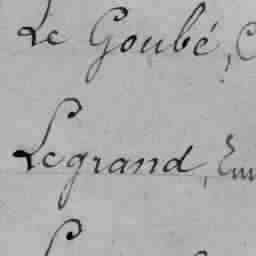 Le Goubé,
Legrand,